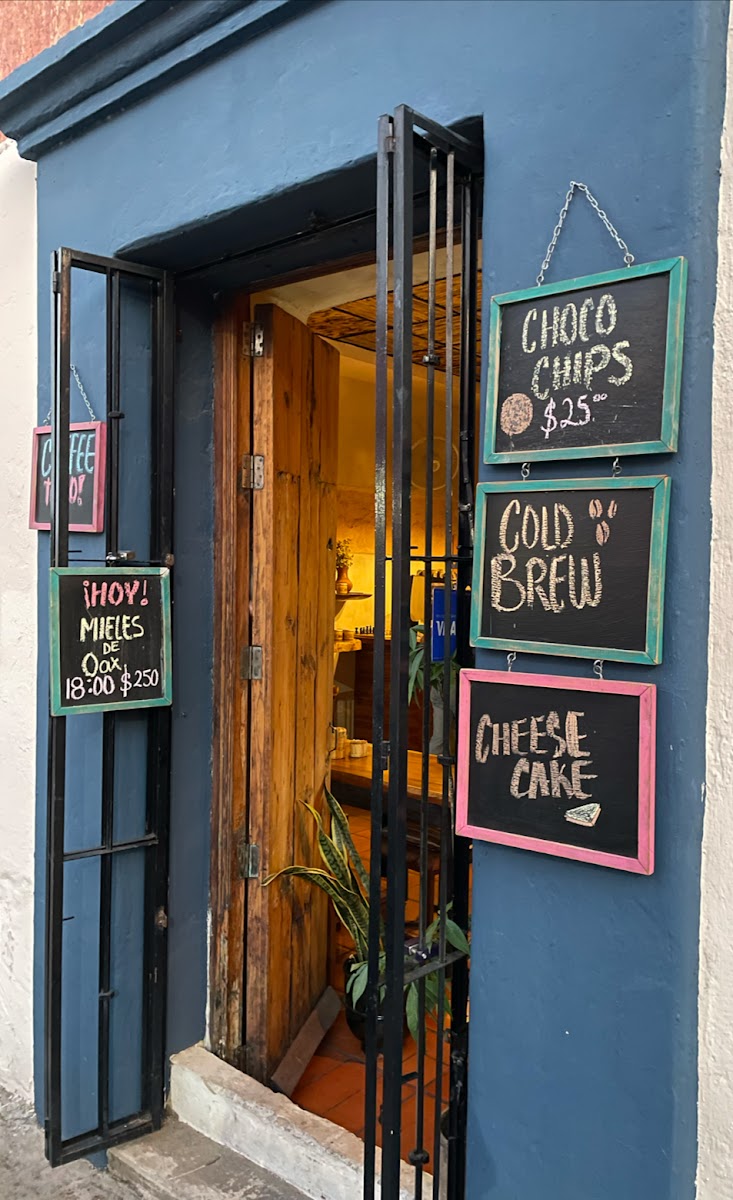 ¡HOY!
MIELES
DE
Oax
18:00 $250
CHOCO
CHIPS
$25.00
COLD
BREW
CHEESE
CAKE